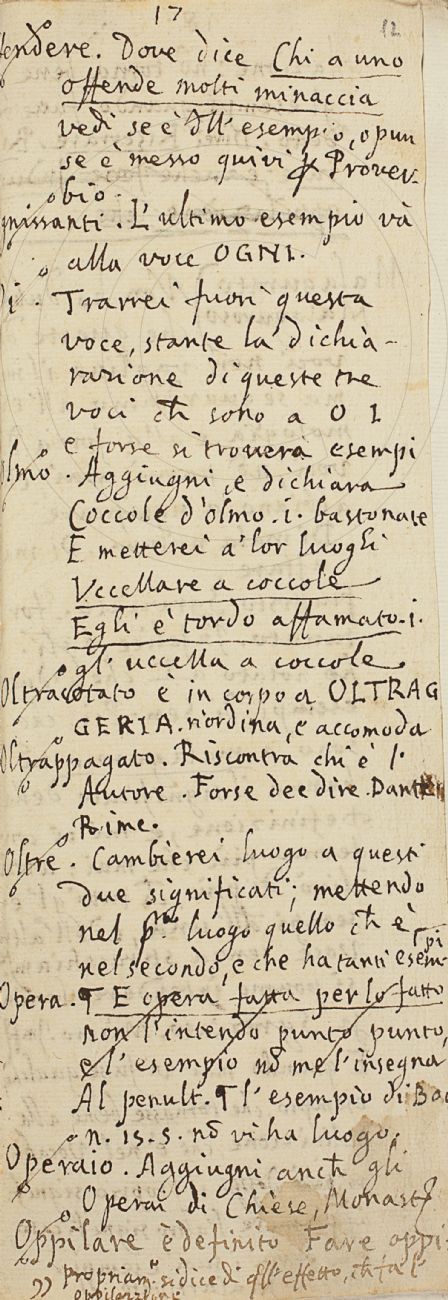 17
12
fendere. Dove dice Chi a uno
offende molti minaccia
vedi se è dll' esempio, o pur
se è messo quivi p Prover-
bio.
gnissanti. L'ultimo esempio và
alla voce OGNI.
di. Trarrei fuori questa
voce, stante la dichia-
razione di queste tre
voci ch sono a O I
e forse si troverà esempi
olmo. Aggiugni, e dichiara
Coccole d'olmo .i. bastonate
E metterei a' lor luoghi
Vccellare a coccole
Egli è tordo affamato .i.
gl' uccella a coccole
Oltracotato è in corpo a OLTRAG
GERIA. riordina, e accomoda
Oltrappagato. Riscontra chi è l'
Autore. Forse dee dire. Dante
Rime.
Oltre. Cambierei luogo a questi
due significati; mettendo
nel pmo luogo quello ch è
nel secondo, e che ha tanti esempi
Opera. ¶ E opera fatta per lo fatto
non l'intendo punto punto,
e l'esempio nō me l'insegna
Al penult. ¶ l'esempio di Boc
n. 15. 5. nō vi ha luogo.
Operaio. Aggiugni anch gli
Operai di Chiese, Monast
Oppilare è definito Fare oppi
propriam. si dice di qll' effetto, ch fa l'
oppilazione